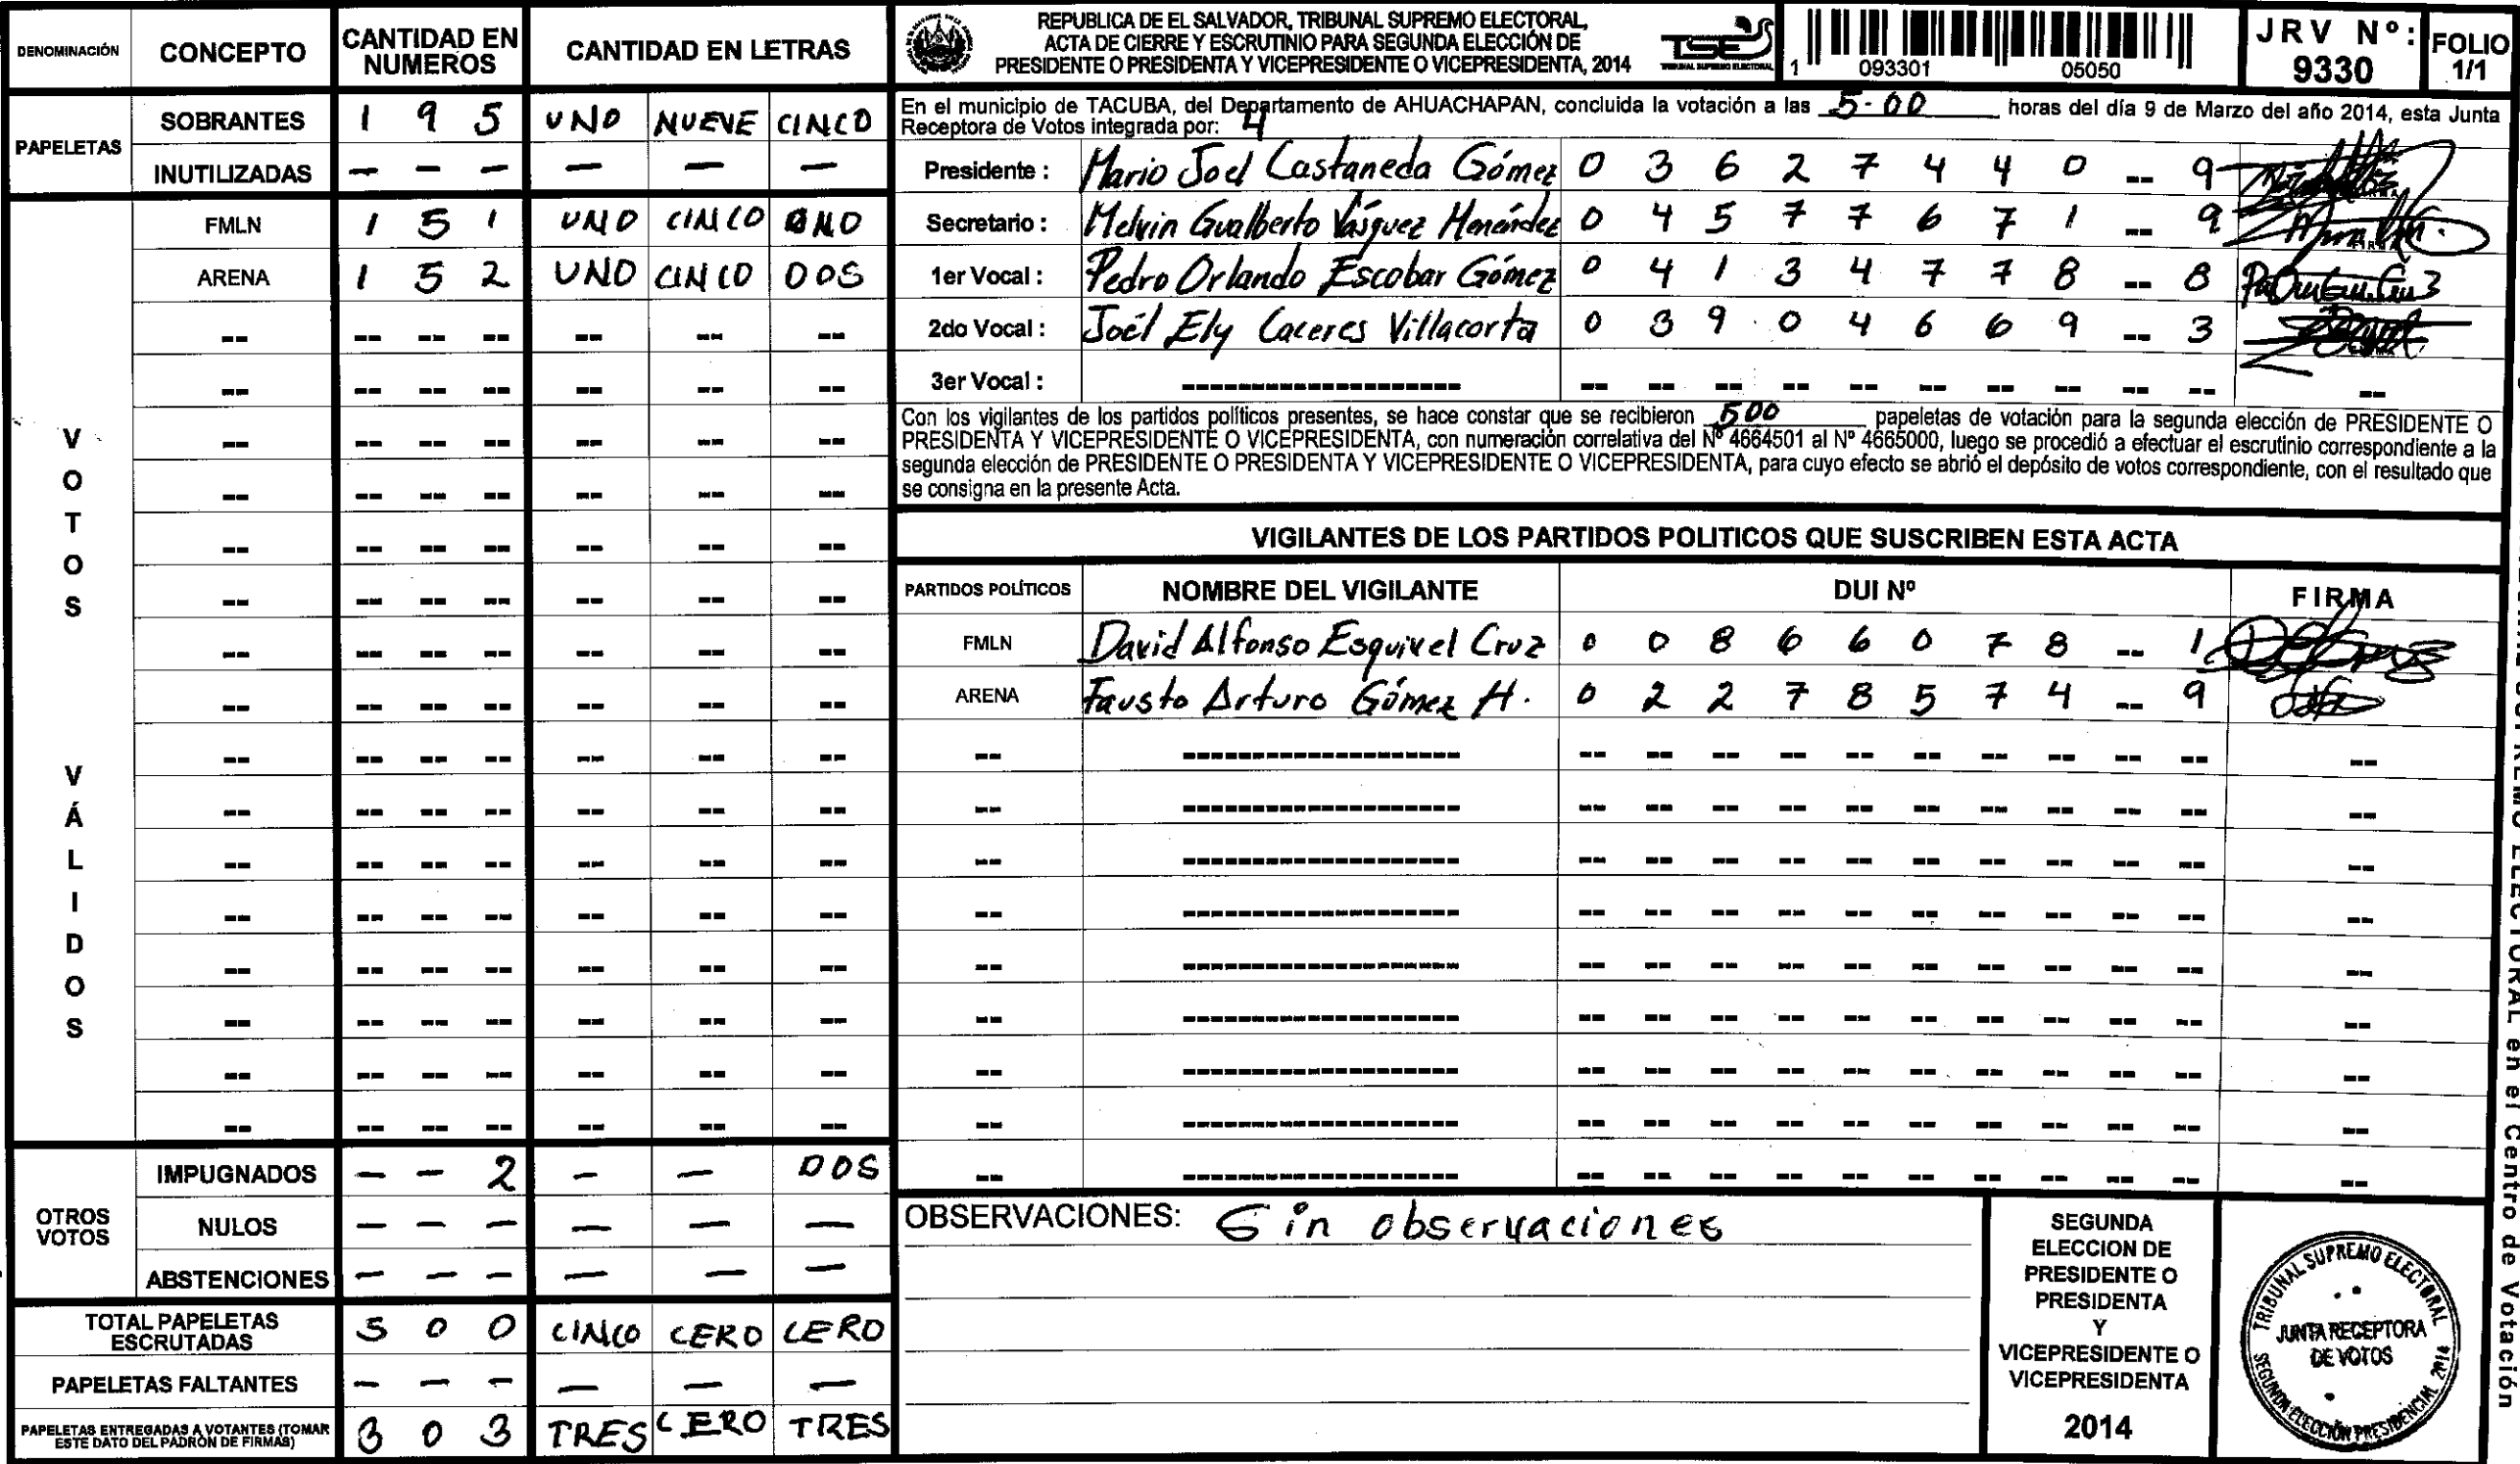 DENOMINACIÓN CONCEPTO CANTIDAD EN NUMEROS CANTIDAD EN LETRAS
PAPELETAS
SOBRANTES 1 9 5 UNO NUEVE CINCO
INUTILIZADAS — — — — — —
VOTOS VÁLIDOS
FMLN 1 5 1 UNO CINCO UNO
ARENA 1 5 2 UNO CINCO DOS
OTROS VOTOS
IMPUGNADOS — — 2 — — DOS
NULOS — — — — — —
ABSTENCIONES — — — — — —
TOTAL PAPELETAS ESCRUTADAS 5 0 0 CINCO CERO CERO
PAPELETAS FALTANTES — — — — — —
PAPELETAS ENTREGADAS A VOTANTES (TOMAR ESTE DATO DEL PADRÓN DE FIRMAS) 3 0 3 TRES CERO TRES
REPUBLICA DE EL SALVADOR, TRIBUNAL SUPREMO ELECTORAL,
ACTA DE CIERRE Y ESCRUTINIO PARA SEGUNDA ELECCIÓN DE
PRESIDENTE O PRESIDENTA Y VICEPRESIDENTE O VICEPRESIDENTA, 2014
TSE
TRIBUNAL SUPREMO ELECTORAL
1 093301 05050
JRV Nº: 9330
FOLIO 1/1
En el municipio de TACUBA, del Departamento de AHUACHAPAN, concluida la votación a las 5-00 horas del día 9 de Marzo del año 2014, esta Junta
Receptora de Votos integrada por: 4
Presidente : Mario Joel Castaneda Gómez 0 3 6 2 7 4 4 0 -- 9
Secretario : Melvin Gualberto Vásquez Menéndez 0 4 5 7 7 6 7 1 -- 9
1er Vocal : Pedro Orlando Escobar Gómez 0 4 1 3 4 7 7 8 -- 8
2do Vocal : Joél Ely Caceres Villacorta 0 3 9 0 4 6 6 9 -- 3
3er Vocal :
Con los vigilantes de los partidos políticos presentes, se hace constar que se recibieron 500 papeletas de votación para la segunda elección de PRESIDENTE O
PRESIDENTA Y VICEPRESIDENTE O VICEPRESIDENTA, con numeración correlativa del Nº 4664501 al Nº 4665000, luego se procedió a efectuar el escrutinio correspondiente a la
segunda elección de PRESIDENTE O PRESIDENTA Y VICEPRESIDENTE O VICEPRESIDENTA, para cuyo efecto se abrió el depósito de votos correspondiente, con el resultado que
se consigna en la presente Acta.
VIGILANTES DE LOS PARTIDOS POLITICOS QUE SUSCRIBEN ESTA ACTA
PARTIDOS POLÍTICOS NOMBRE DEL VIGILANTE DUI Nº FIRMA
FMLN David Alfonso Esquivel Cruz 0 0 8 6 6 0 7 8 -- 1
ARENA Fausto Arturo Gómez H. 0 2 2 7 8 5 7 4 -- 9
OBSERVACIONES: Sin observaciones
SEGUNDA
ELECCION DE
PRESIDENTE O
PRESIDENTA
Y
VICEPRESIDENTE O
VICEPRESIDENTA
2014
TRIBUNAL SUPREMO ELECTORAL
JUNTA RECEPTORA
DE VOTOS
SEGUNDA ELECCIÓN PRESIDENCIAL 2014
SUPREMO ELECTORAL en el Centro de Votación